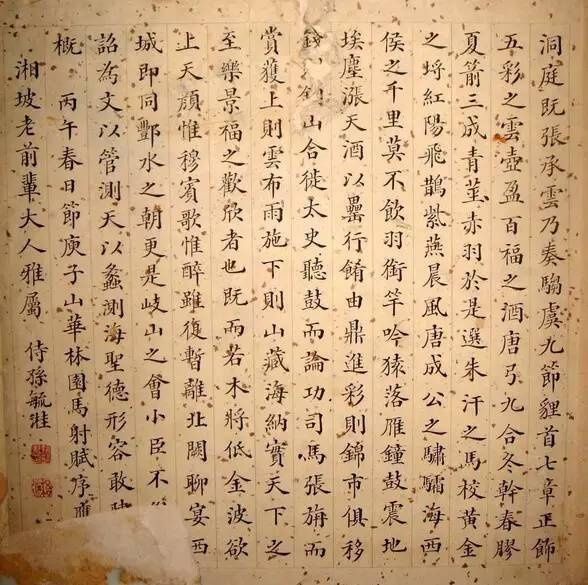 洞庭既張承雲乃奏騶虞九節貍首七章正飾
五彩之雲壺盈百福之酒唐弓九合冬幹春膠
夏箭三成青莖赤羽於是選朱汗之馬校黃金
之埒紅陽飛鵲紫燕晨風唐成公之驌驦海西
侯之千里莫不飲羽銜竿吟猿落雁鐘鼓震地
埃塵漲天酒以罍行餚由鼎進彩則錦市俱移
錢山合徙太史聽鼓而論功司馬張旃而
賞獲上則雲布雨施下則山藏海納實天下之
至樂景福之歡欣者也既而若木將低金波欲
上天顏惟穆賓歌惟醉雖復暫離北闕聊宴西
城即同酆水之朝更是岐山之會小臣不
詔為文以管測天以蠡測海聖德形容敢
概 丙午春日節庾子山華林園馬射賦序應
湘坡老前輩大人雅屬 侍孫毓溎